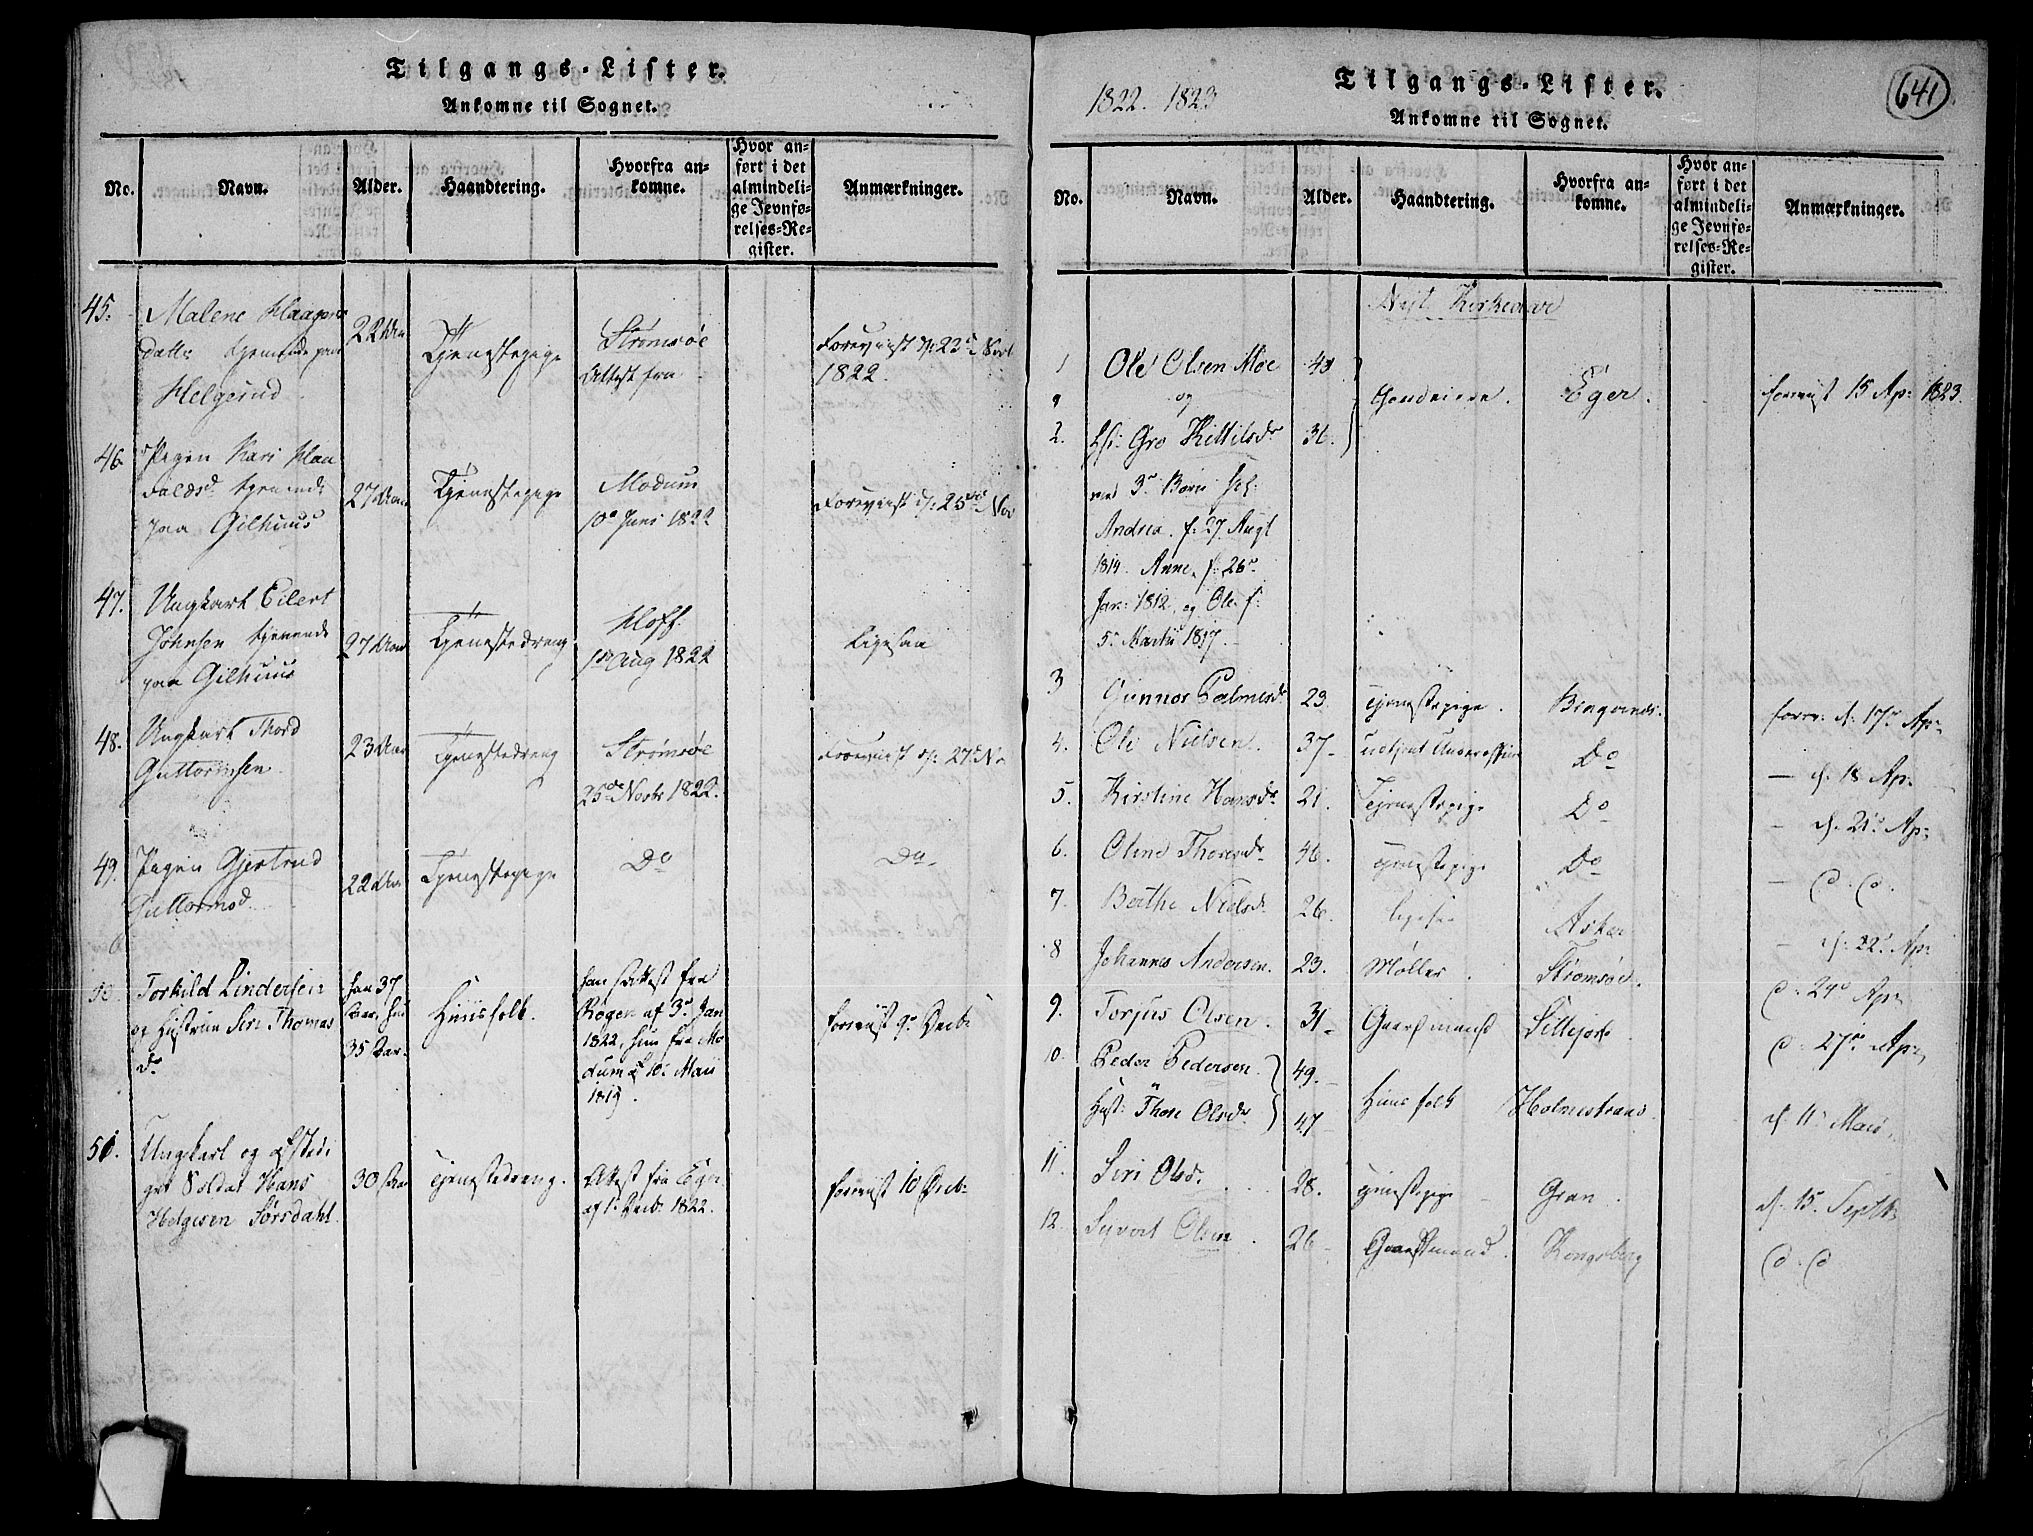 Tilgangs-Lister.
Ankomne til Sognet.
No. Navn. Alder. Haandtering. Hvorfra an-
komne. Hvor an-
ført i det
almindeli-
ge Jevnfø-
relses-Re-
gister. Anmærkninger.
45. Malene
datter tjenende paa
Helgerud
22 Aar
Tjenestepige
Strømsøe
Attest fra
Foreviist d: 23 Novb
1822.
46 Pigen Kari
tjenende
paa Gilhuus
27 Aar
Tjenestepige
Modum
10 Juni 1822
Foreviist d: 25de Nov
47. Ungkarl Eilert
Johnsen tjenende
paa Gilhuus
27 Aar
Tjenestedreng
Hoff
Aug 1822
Ligesaa
48. Ungkarl Thord
Guttormsen
23 Aar
Tjenestedreng
Strømsøe
25de Novbr 1822.
Foreviist d: 27 No
49. Pigen Gjertrud
Guttormsd.
22 Aar
Tjenestepige
Do
Do
50 Torkild Lindersen
og Hustrue Siri Thomas
dr
han 37
Aar, hun
35 Aar.
Huusfolk.
han Attest fra
Rogen af 3 Jan
1822, hun fra Mo
dum 10 Maii
1819.
foreviist 9 Decbr
51. Ungkarl og
Soldat Hans
Helgesen Sørsdahl.
30 Aar
Tjenestedreng.
Attest fra Eger
af 1 Decbr 1822.
foreviist 10 Decb:
1822. 1823
Tilgangs-Lister.
Ankomne til Sognet.
641
No. Navn. Alder. Haandtering. Hvorfra an-
komne. Hvor an-
ført i det
almindeli-
ge Jevnfø-
relses-Re-
gister. Anmærkninger.
Nyt Kirkeaar
1 Ole Olsen Moe
og
2. Gro Kittilsdr 36.
Eger.
foreviist 15 Ap: 1823.
med 3 Børn
Andrea. f: 27 Augt
1814. Anne, f: 26
Jan: 1812, og Ole f:
5 Martii 1817.
3 Gunnor Palmesdr 23. Tjenestepige. forev: d: 17 Ap:
4. Ole Nielsen. 37 Do d: 18 Ap:
5. Kirstine Hansdr 21. Tjenestepige Do d. 21 Ap:
6. Oline Thoresdr 46. Tjenestepige Do d. d.
7. Berthe Nielsdr 26. ligesaa Asker d: 22 Ap:
8 Johannes Andersen. 23. Møller. Strømsøe. d: 24 Ap:
9. Torjus Olsen. 31 Gaardmand Lillejord d: 27 Ap:
10. Peder Pedersen 49.
Hust: Thore Olsdr 47
Huusfolk Holmestrand d. 11 Maii.
11. Siri Olsd. 28. Tjenestepige Gran. d. 15 Septb
12. Syvert Olsen. 26 Gaardmand. Kongsberg d. d